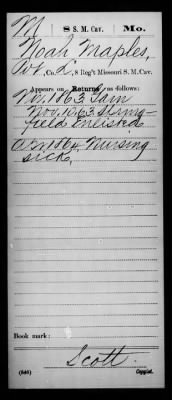 M | 8 S. M. Cav. | Mo.
Noah Maples,
Pvt., Co. L, 8 Reg't Missouri S. M. Cav.
Appears on Returns as follows:
Nov. 1863 Gain
Nov. 10/63 Spring-
field Enlisted
Apr 1864 Nursing
sick.
Book mark:
Scott.
(546) Copyist.